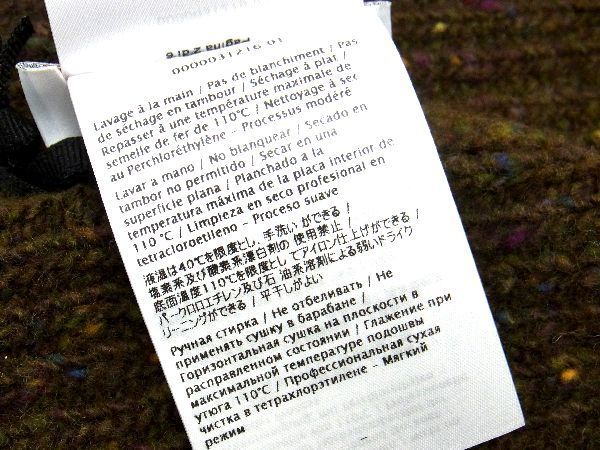 0000031216 01
Pagina 2 di 6
0000031216 01
Lavage à la main / Pas de blanchiment / Pas
de séchage en tambour / Séchage à plat /
Repasser à une température maximale de
semelle de fer de 110°C / Nettoyage à sec
au Perchloréthylène - Processus modéré
Lavar a mano / No blanquear / Secado en
tambor no permitido / Secar en una
superficie plana / Planchado a la
temperatura máxima de la placa interior de
110 °C / Limpieza en seco profesional en
tetracloroetileno - Proceso suave
液温は40℃を限度とし、手洗いができる /
塩素系及び酸素系漂白剤の 使用禁止 /
底面温度110℃を限度としてアイロン仕上げができる /
パークロロエチレン及び石 油系溶剤による弱いドライク
リーニングができる / 平干しがよい
Ручная стирка / Не отбеливать / Не
применять сушку в барабане /
Горизонтальная сушка на плоскости в
расправленном состоянии / Глажение при
максимальной температуре подошвы
утюга 110°C / Профессиональная сухая
чистка в тетрахлорэтилене - Мягкий
режим